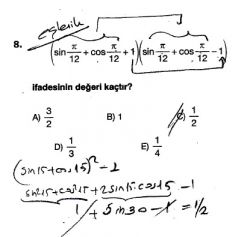 eşlenik
8. (sin π/12 + cos π/12 + 1)(sin π/12 + cos π/12 - 1)
ifadesinin değeri kaçtır?
A) 3/2 B) 1 C) 1/2
D) 1/3 E) 1/4
(sin15+cos15)² - 1
sin²15+cos²15+2sin15.cos15 - 1
1 + sin30 - 1 = 1/2